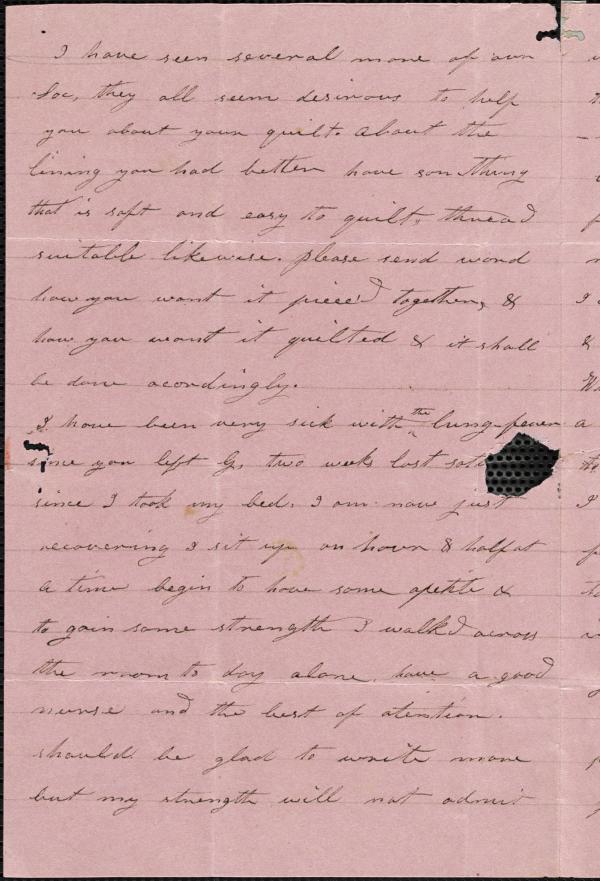 I have seen several more of our
Soc, they all seem desirous to help
you about your quilt. About the
lining you had better have somthing
that is soft and easy to quilt, thread
suitable likewise. please send word
how you want it piece'd together, &
how you want it quilted & it shall
be done acordingly.
I have been very sick with the lung-fever a
since you left G, two weeks last
since I took my bed. I am now just
recovering I sit up an hour & half at
a time begin to have some apetite &
to gain some strength I walk'd across
the room to day alone, have a good
nurse and the best of atention.
should be glad to write more
but my strength will not admit